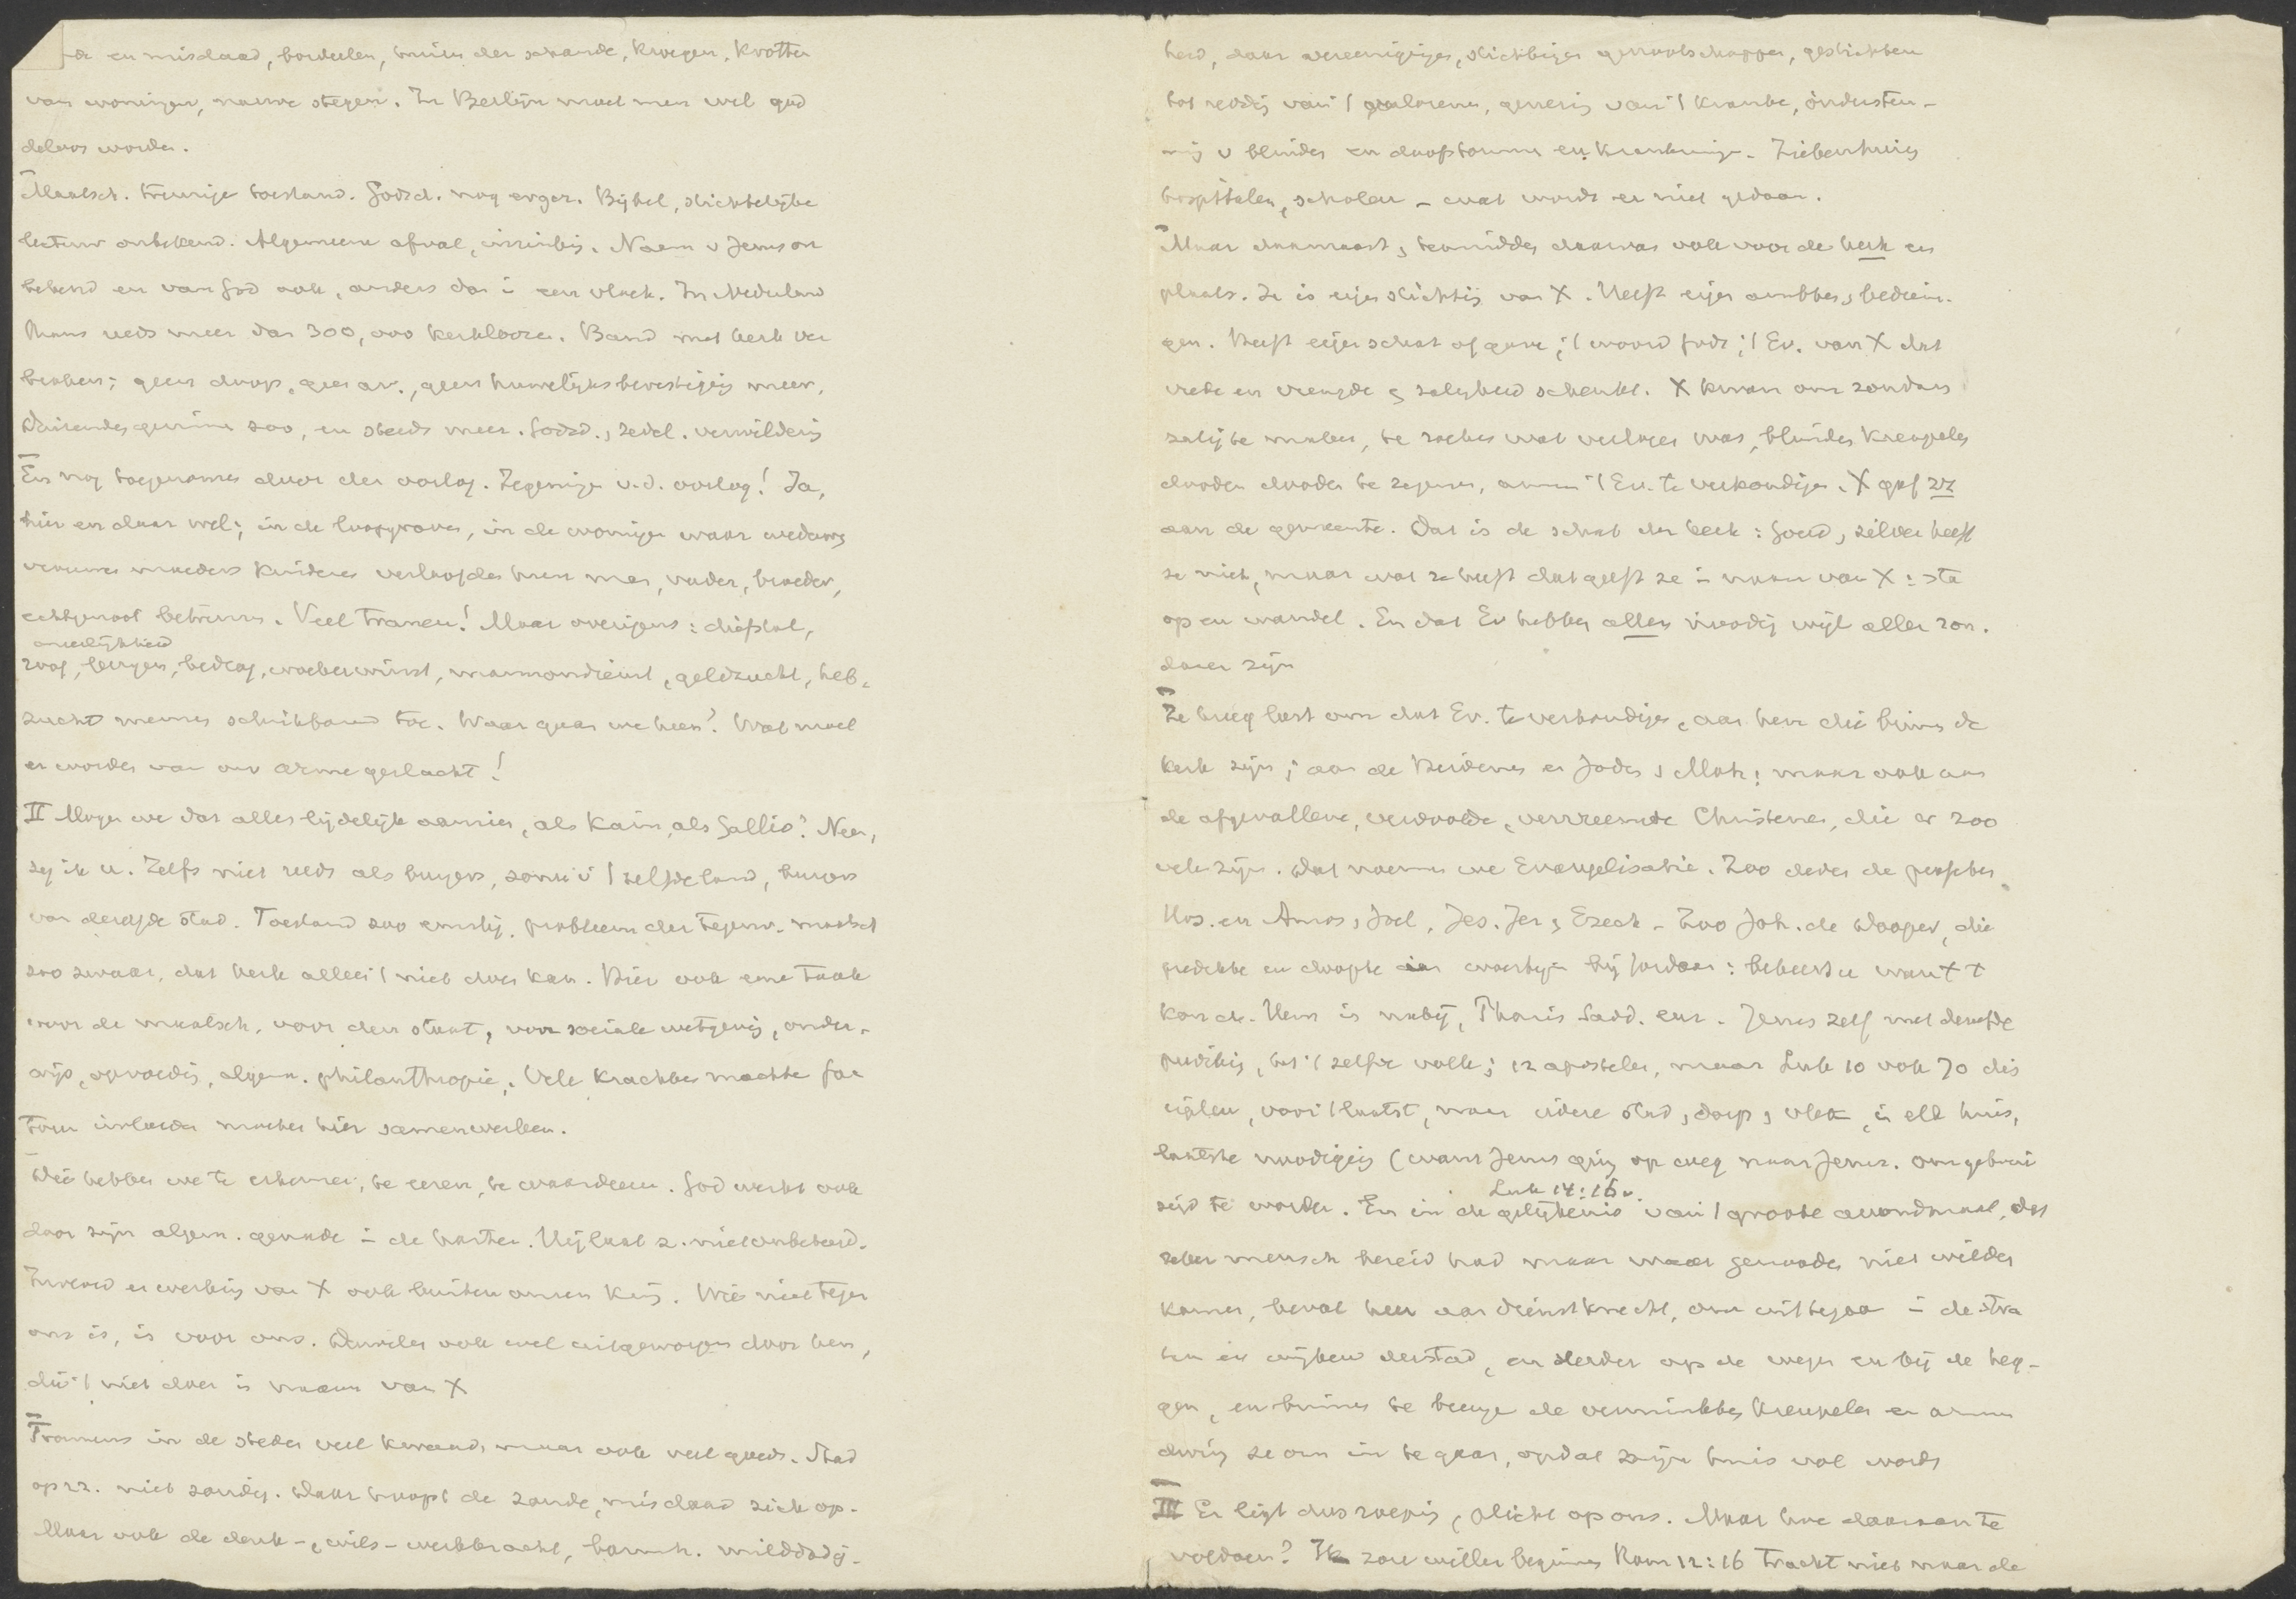 en misdaad, bordeelen, huizen der schande, kroegen, krotten
van woningen, nauwe stegen. In Berlijn moet men wel god
deloos worden.
Maatsch. treurige toestand. Godsd. nog erger. Bijbel, stichtelijke
lectuur onbekend. Algemeene afval, inzinking. Naam v Jezus on
bekend en van God ook, anders dan in een vloek. In Nederland
thans reeds meer dan 300,000 kerkloozen. Band met kerk ver
broken; geen doop, geen av., geen huwelijksbevestiging meer,
Duizenden gezinnen zoo, en steeds meer. Godsd., zedel. verwildering
En nog toegenomen door den oorlog. Zegeningen v.d. oorlog! Ja,
hier en daar wel; in de loopgraven, in de woningen waar weduwen
vrouwen moeders kinderen verloofden hun man, vader, broeder,
echtgenoot betreuren. Veel tranen! Maar overigens: diefstal,
oneerlijkheid
bedrog, woekerwinst, mammondienst, geldzucht, heb-
zucht nemen schrikbarend toe. Waar gaan we heen? Wat moet
er worden van ons arme geslacht!
II Mogen we dat alles lijdelijk aanzien, als Kain, als Gallio? Neen,
zeg ik u. Zelfs niet reeds als burgers, zonen v 't zelfde land, burgers
van dezelfde stad. Toestand zoo ernstig, probleem der tegenw. maatsch
zoo zwaar, dat kerk alleen 't niet doen kan. Hier ook eene taak
voor de maatsch. voor den staat, voor sociale wetgeving, onder-
wijs, opvoeding, algem. philanthropie. Vele krachten machten fac
toren invloeden moeten hier samenwerken.
Die hebben we te erkennen, te eeren, te waardeeren. God werkt ook
door zijn algem. genade in de harten. Hij laat z. niet onbetuigd.
Invloed en werking van X ook buiten onzen kring. Wie niet tegen
ons is, is voor ons. Duivelen ook wel uitgeworpen door hen,
die 't niet doen in naam van X
Trouwens in de steden veel kwaad, maar ook veel goeds. Stad
op zz. niet zondig. Daar hoopt de zonde, misdaad zich op.
Maar ook de denk-, wils- werkkracht, barmh. milddadig-
heid, daar vereenigingen, stichtingen genootschappen, gestichten
tot redding van 't verlorene, genezing van 't kranke, ondersteu-
ning v blinden en doofstommen en krankzinnigen. Ziekenhuizen
hospitalen, scholen - wat wordt er niet gedaan.
Maar daarnaast, temidden daarvan ook voor de kerk een
plaats. Ze is eigen stichting van X. Heeft eigen ambten, bedien-
gen. Heeft eigen schat of gave; 't woord Gods; 't Ev. van X dat
vrede en vreugde en zaligheid schenkt. X kwam om zondaars
zalig te maken, te zoeken wat verloren was, blinden kreupelen
dooven dooden te zegenen, armen 't Ev. te verkondigen. X gaf zz
aan de gemeente. Dat is de schat der kerk: goud, zilver heeft
ze niet, maar wat ze heeft dat geeft ze in naam van X: sta
op en wandel. En dat Ev hebben allen noodig wijl allen zon-
daren zijn
Ze kreeg last om dat Ev. te verkondigen, aan hen die binnen de
kerk zijn; aan de Heidenen en Joden, Moh; maar ook aan
de afgevallene, verdoolde, vervreemde Christenen, die er zoo
vele zijn. Dat noemen we Evangelisatie. Zoo deden de profeten
Hos. en Amos, Joel, Jes. Jer, Ezech - Zoo Joh. de Dooper, die
predikte en doopte in woestijn bij Jordaan: bekeert u want 't
kon. d. Hem. is nabij, Phariz Sadd. enz. Jezus zelf met dezelfde
prediking, tot 't zelfde volk; 12 apostelen, maar Luk 10 ook 70 dis
cipelen, voor 't laatst, naar iedere stad, dorp, vlek, in elk huis,
laatste noodiging (want Jezus ging op weg naar Jeruz. om gekrui
Luk 14:16v.
sigd te worden. En in de gelijkenis van 't groote avondmaal, dat
zeker mensch bereid had maar waar genooden niet wilden
komen, beval heer aan dienstknecht, om uit te gaan in de stra
ten en wijken der stad, en verder op de wegen en bij de heg-
gen, en binnen te brengen de verminkten kreupelen en armen
dwing ze om in te gaan, opdat zijn huis vol worde
III Er ligt dus roeping, plicht op ons. Maar hoe daaraan te
voldoen? Ik zou willen beginnen Rom 12:16 Tracht niet naar de